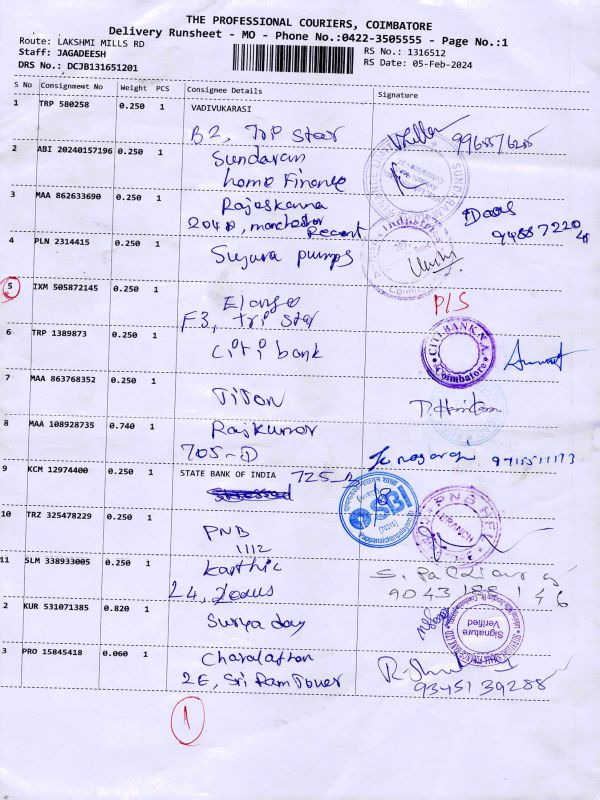 THE PROFESSIONAL COURIERS, COIMBATORE
Delivery Runsheet - MO - Phone No.:0422-3505555 - Page No.:1
Route: LAKSHMI MILLS RD
RS No.: 1316512
Staff: JAGADEESH
RS Date: 05-Feb-2024
DRS No.: DCJB131651201
S No Consignment No Weight PCS Consignee Details Signature
1 TRP 580258 0.250 1 VADIVUKARASI
B2, Top Star
2 ABI 20240157196 0.250 1 Sundaram
home Finance
3 MAA 862633690 0.250 1 Rajeskanna
204 D, manchester Regent
Daas
4 PLN 2314415 0.250 1 Sujura pumps
5 IXM 505872145 0.250 1 Elango P/S
F3, Tri Star
6 TRP 1389873 0.250 1 Citi bank
CITIBANK N.A. Coimbatore
7 MAA 863768352 0.250 1 Titon
8 MAA 108928735 0.740 1 Rajkumar
705-D
9 KCM 12974400 0.250 1 STATE BANK OF INDIA 725-B
SBI
10 TRZ 325478229 0.250 1 PNB
1112
PNB HF
11 SLM 338933005 0.250 1 Karthic
24, Zexus
9043188146
2 KUR 531071385 0.820 1 Surya day
Signature Verified
3 PRO 15845418 0.060 1 Charalathan
2E, Sri Ram Tower
9345139288
1